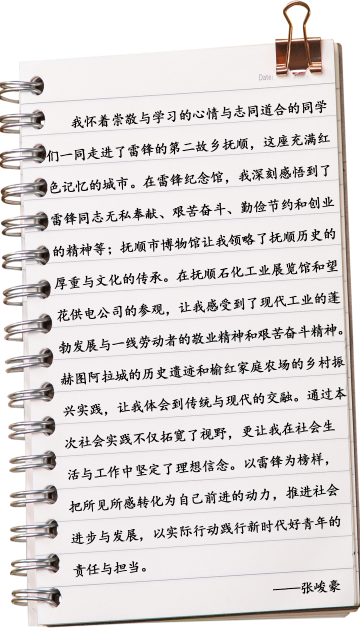 Date:
我怀着崇敬与学习的心情与志同道合的同学
们一同走进了雷锋的第二故乡抚顺，这座充满红
色记忆的城市。在雷锋纪念馆，我深刻感悟到了
雷锋同志无私奉献、艰苦奋斗、勤俭节约和创业
的精神等；抚顺市博物馆让我领略了抚顺历史的
厚重与文化的传承。在抚顺石化工业展览馆和望
花供电公司的参观，让我感受到了现代工业的蓬
勃发展与一线劳动者的敬业精神和艰苦奋斗精神。
赫图阿拉城的历史遗迹和榆红家庭农场的乡村振
兴实践，让我体会到传统与现代的交融。通过本
次社会实践不仅拓宽了视野，更让我在社会生
活与工作中坚定了理想信念。以雷锋为榜样，
把所见所感转化为自己前进的动力，推进社会
进步与发展，以实际行动践行新时代好青年的
责任与担当。
——张峻豪